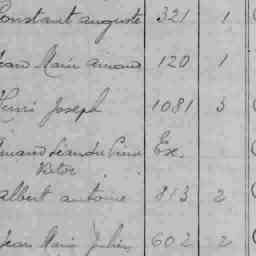 Constant auguste 321 1
Jean Marie amand 120 1
Henri Joseph 1081 3
Amand Léandre Ex.
Victor
albert antoine 813 2
Jean Marie Julien 602 2